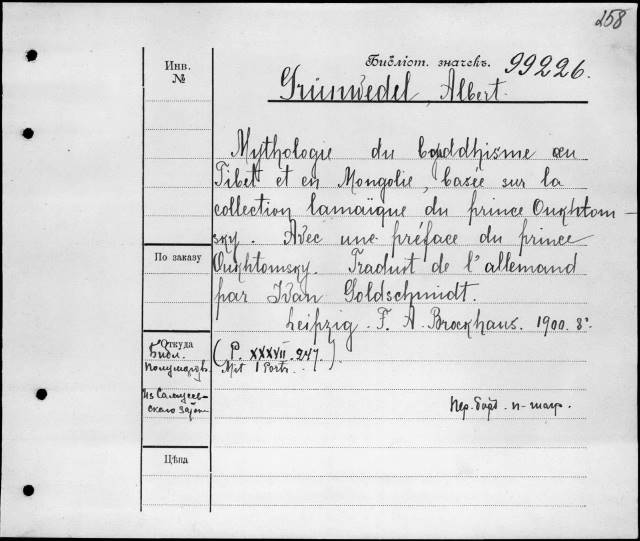 258
Инв.
№
Библіот. значекъ. 99226.
Grünwedel, Albert.
Mythologie du bouddhisme au
Tibet et en Mongolie, basée sur la
collection lamaïque du prince Oukhtom-
sky. Avec une préface du prince
По заказу
Oukhtomsky. Traduit de l'allemand
par Ivan Goldschmidt.
Leipzig. F. A. Brockhaus. 1900. 8º.
Откуда
Библ.
(P. XXXVII. 247.)
Mit 1 Portr.
Изъ
Пер.
Цѣна